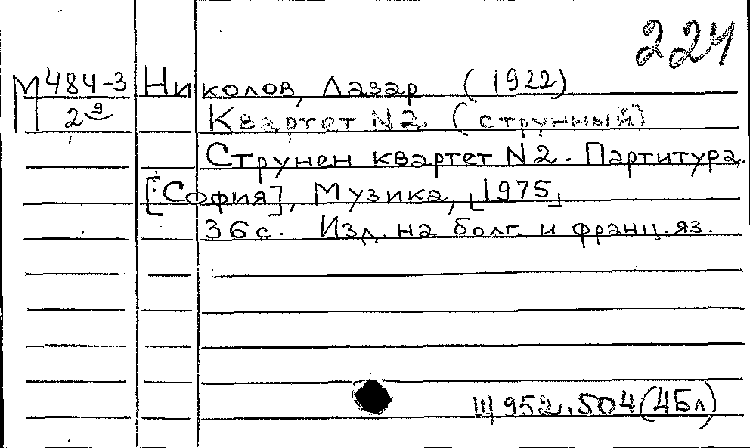 224
М 484-3 Николов, Лазар (1922)
2э Квартет N2. (струнный)
Струнен квартет N2. Партитура.
[София], Музика, [1975]
36 с. Изд. на болг. и франц. яз.
952.504 (45л)